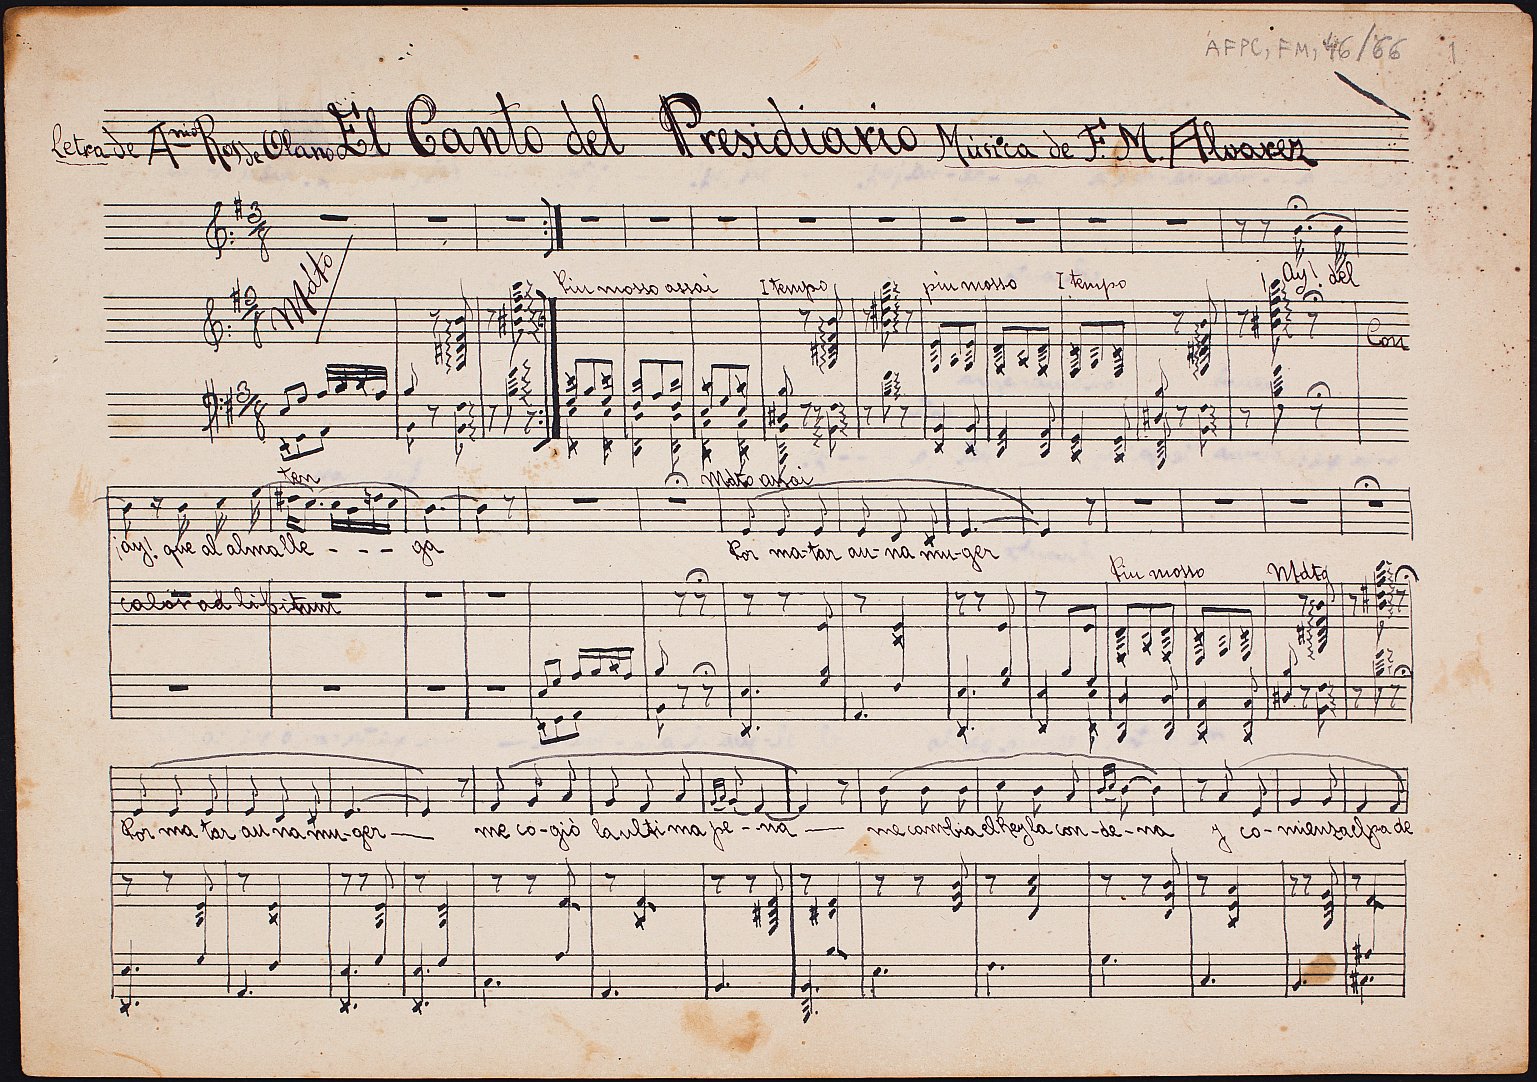 AFPC, FM, 46/66 1
Letra de Anio Ros de Olano El Canto del Presidiario Música de F. M. Alvarez
3/8
Mdto
Piu mosso assai I tempo piu mosso I tempo
Ay! del
Con
3/8
3/8
ten Mdto assai
¡ay! que al alma lle - - - - ga Por ma-tar au-na mu-ger
Piu mosso Mdto
calor ad libitum
Por ma tar au na mu-ger — me co-gió la ulti ma pe - na — me cambia el Rey la con-de-na y co-mienza el pa de